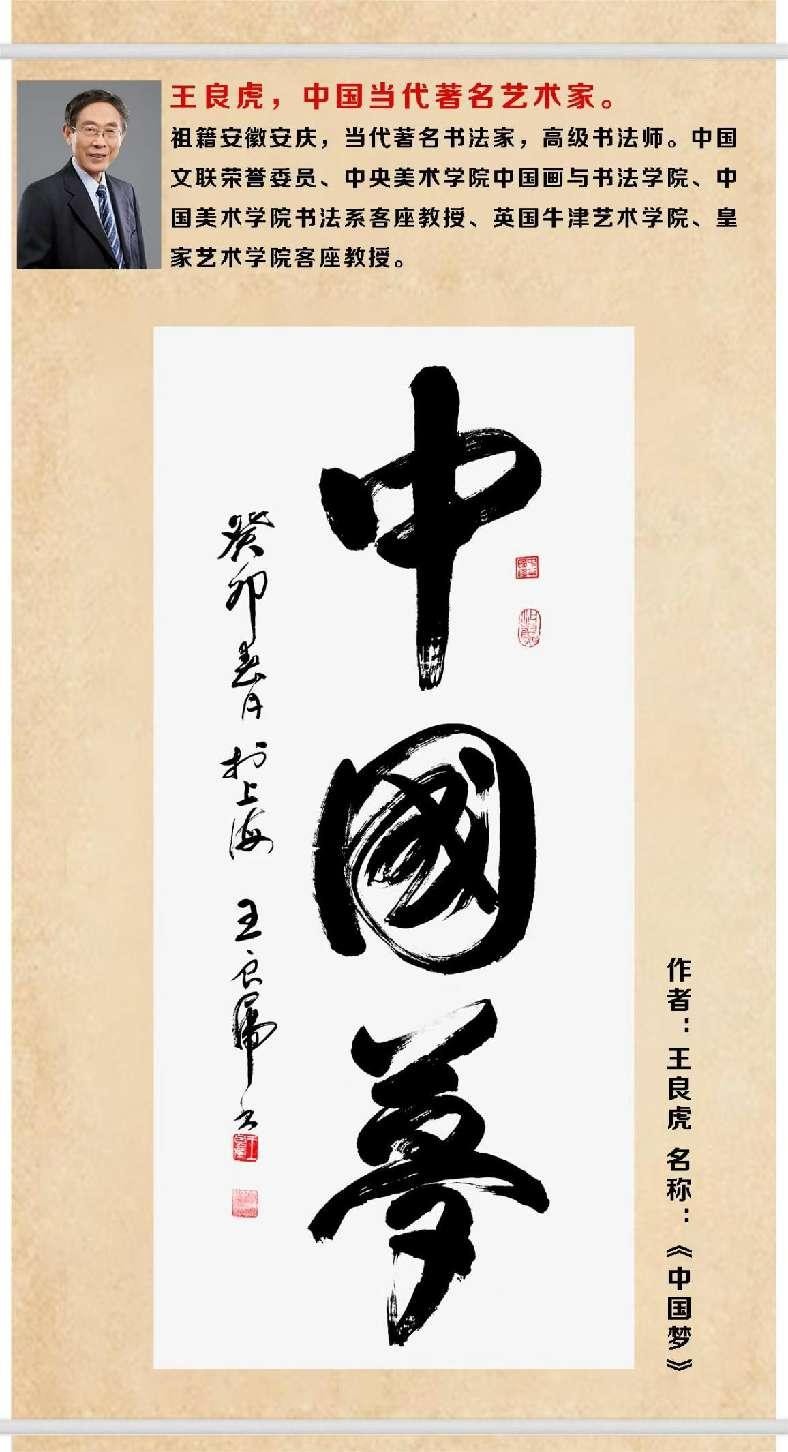 王良虎，中国当代著名艺术家。
祖籍安徽安庆，当代著名书法家，高级书法师。中国
文联荣誉委员、中央美术学院中国画与书法学院、中
国美术学院书法系客座教授、英国牛津艺术学院、皇
家艺术学院客座教授。
中國夢
癸卯春月於上海 王良虎书
作者：王良虎 名称：《中国梦》